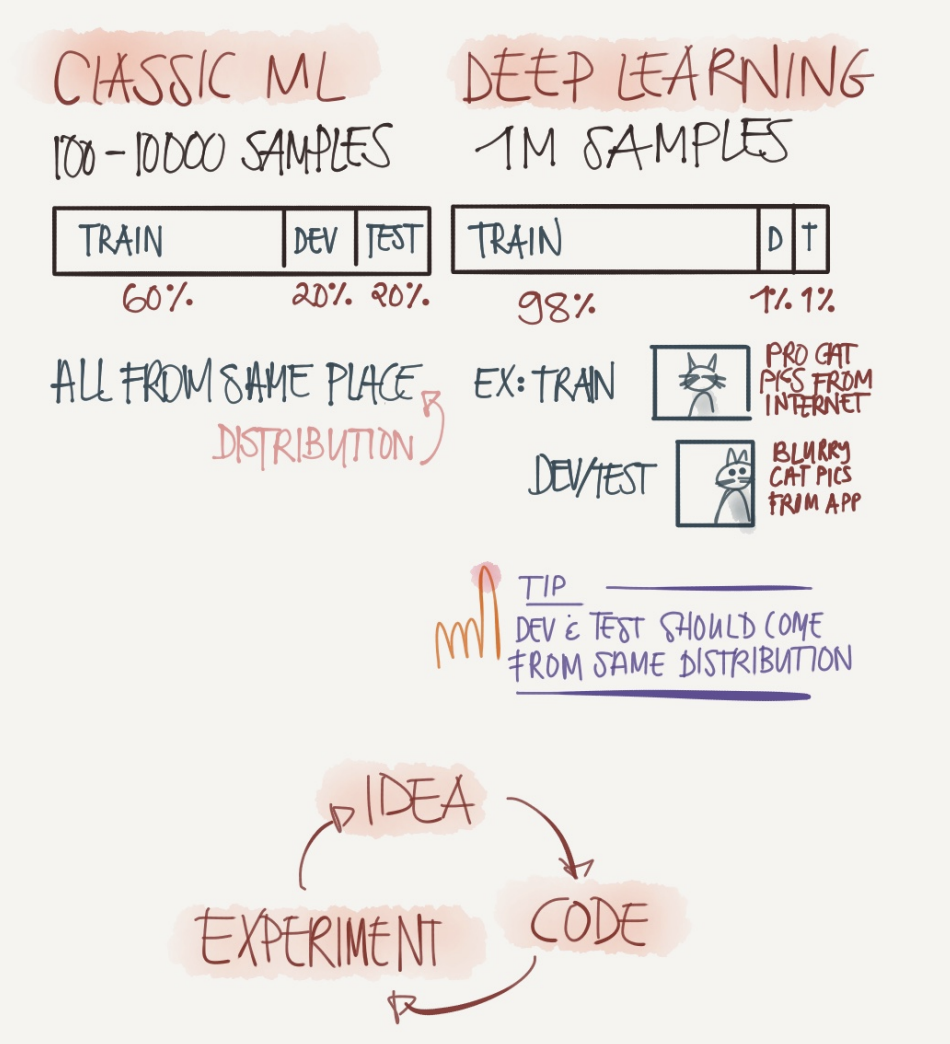 CLASSIC ML
100-10000 SAMPLES
TRAIN DEV TEST
60% 20% 20%
ALL FROM SAME PLACE
DISTRIBUTION
DEEP LEARNING
1M SAMPLES
TRAIN D T
98% 1% 1%
EX: TRAIN
PRO CAT
PICS FROM
INTERNET
DEV/TEST
BLURRY
CAT PICS
FROM APP
TIP
DEV & TEST SHOULD COME
FROM SAME DISTRIBUTION
IDEA
CODE
EXPERIMENT